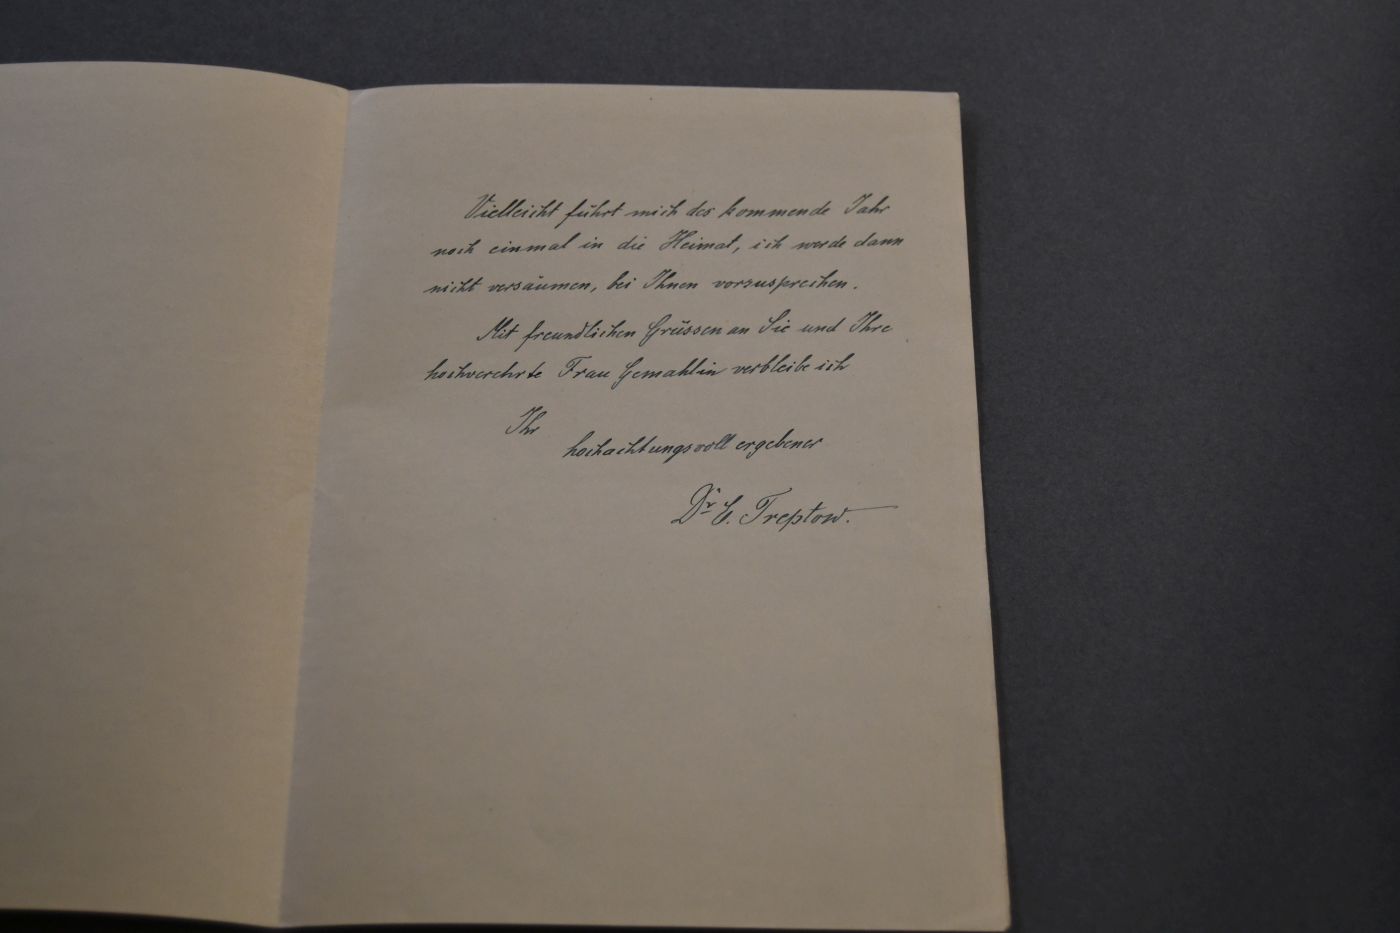 Vielleicht führt mich das kommende Jahr
noch einmal in die Heimat, ich werde dann
nicht versäumen, bei Ihnen vorzusprechen.
Mit freundlichen Grüssen an Sie und Ihre
hochverehrte Frau Gemahlin verbleibe ich
Ihr
hochachtungsvoll ergebener
Dr E. Treptow.